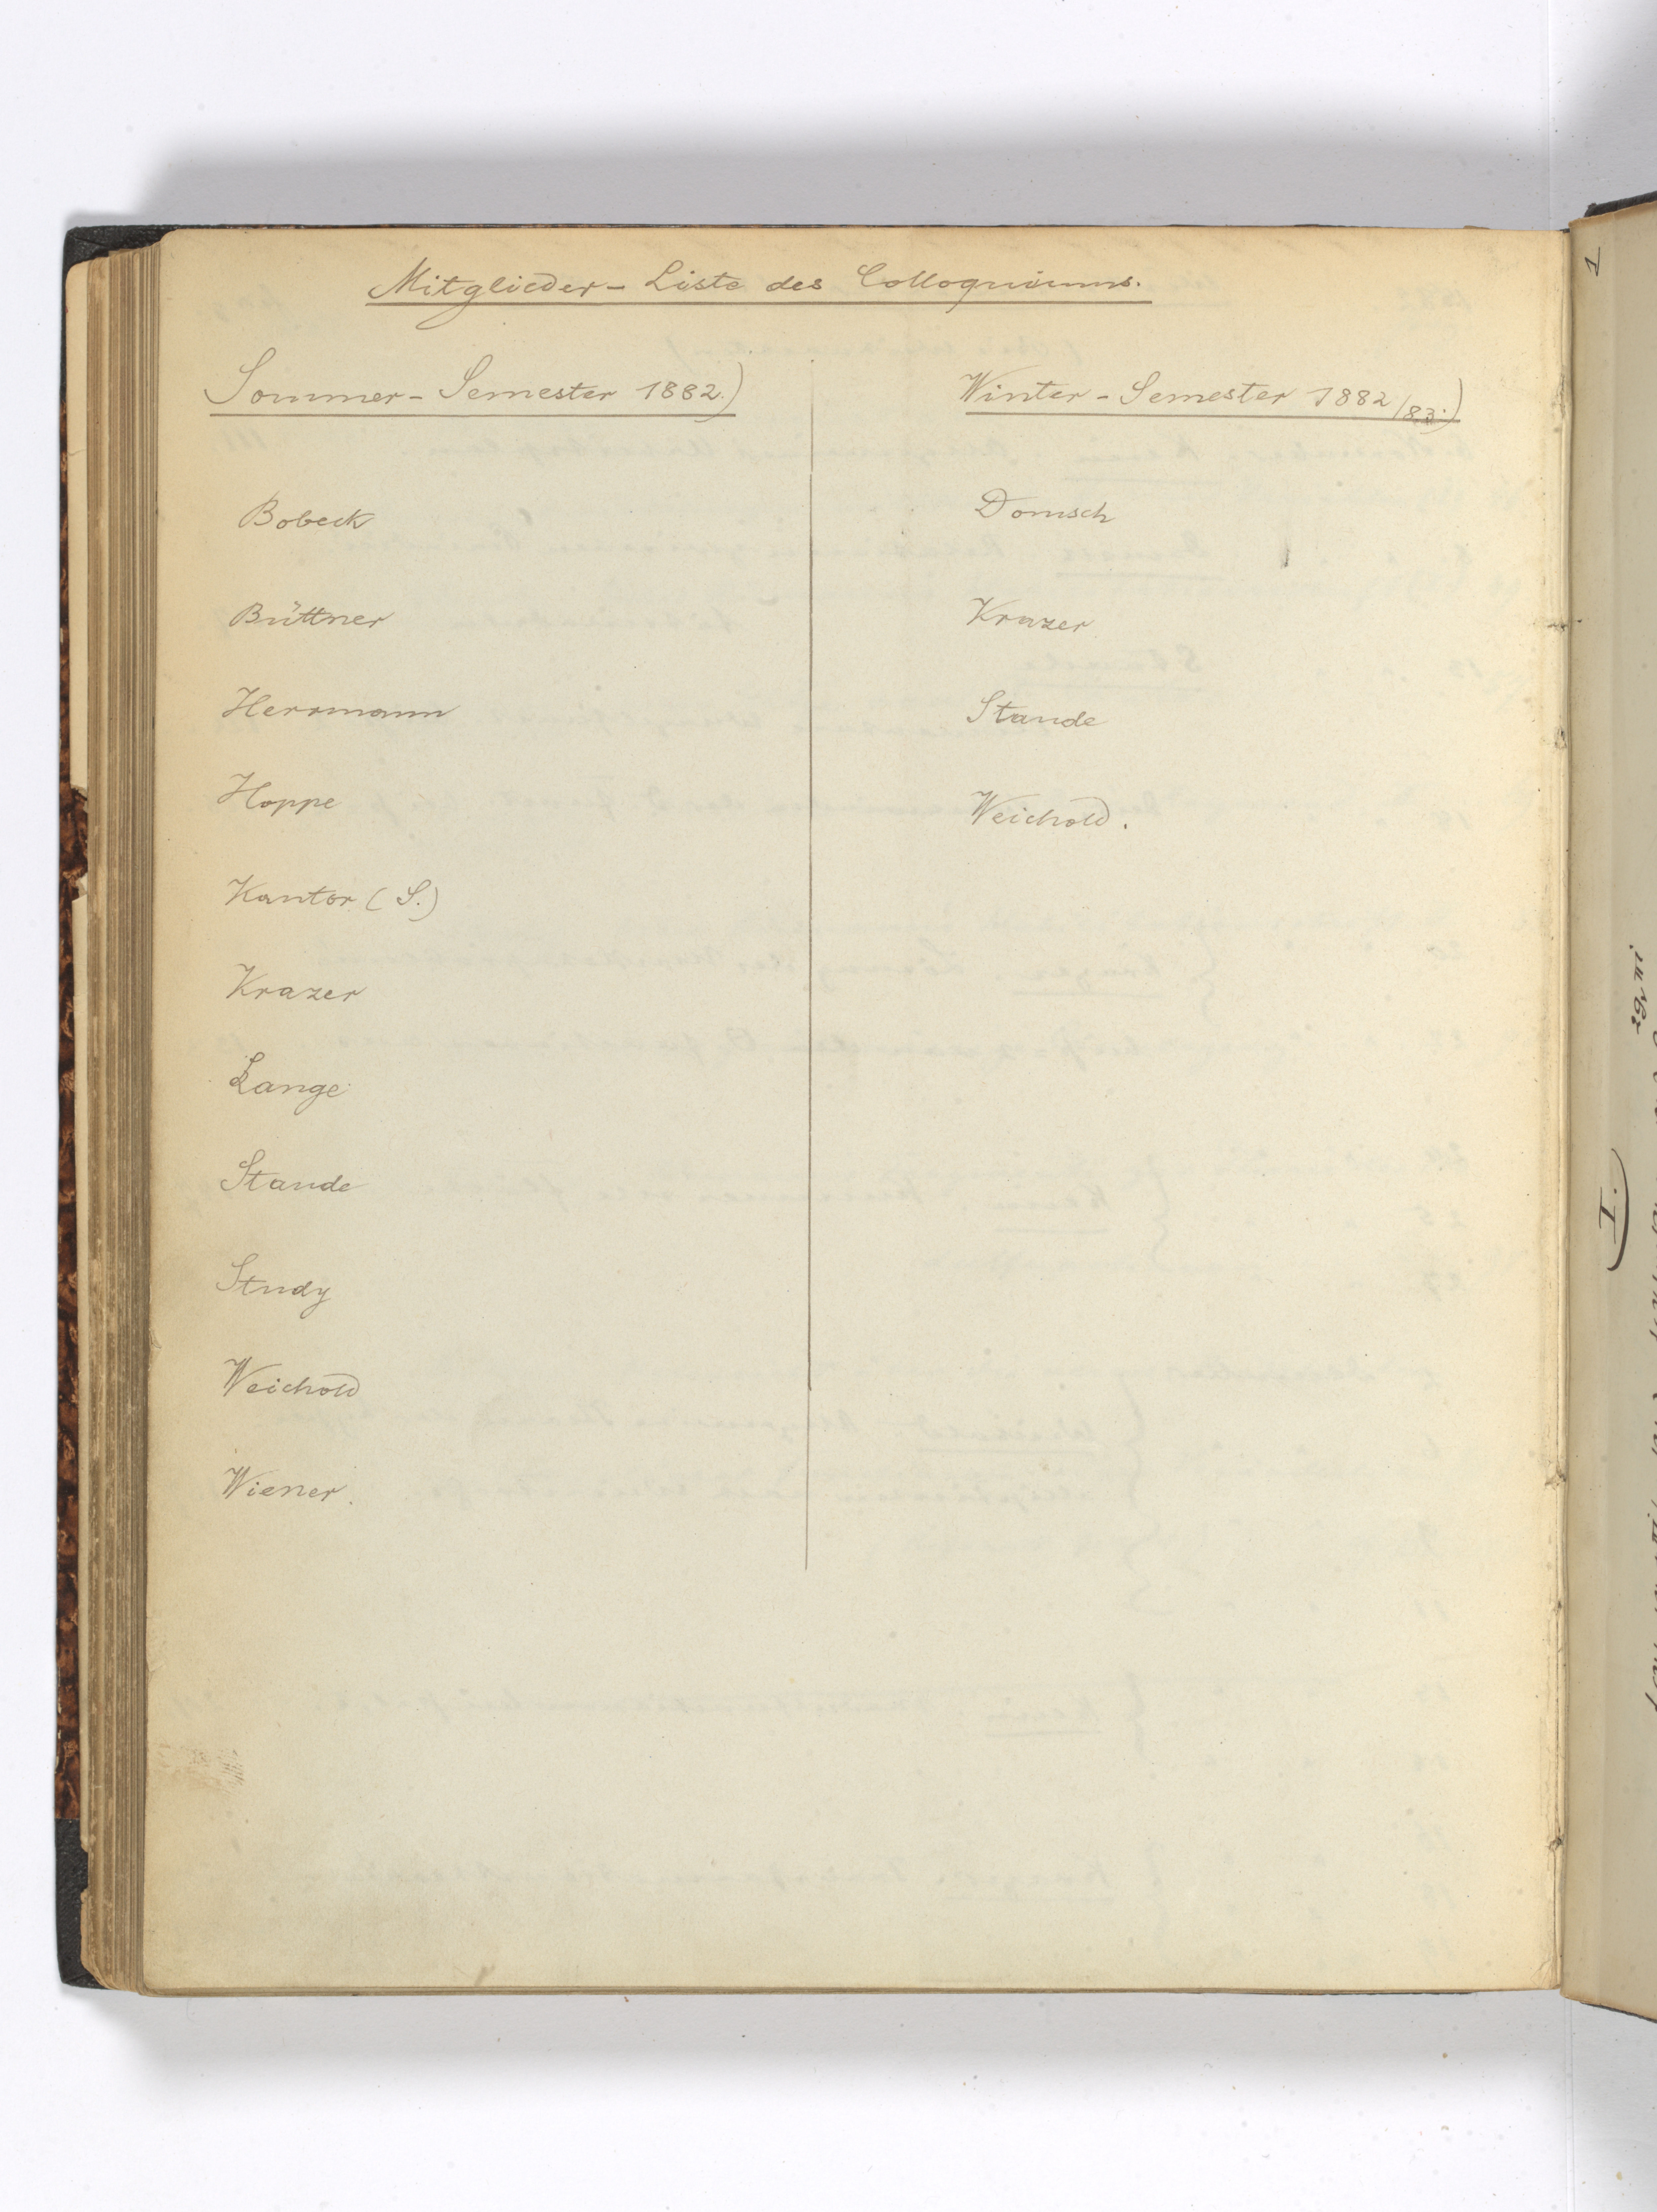 Mitglieder - Liste des Colloquiums.
Sommer - Semester 1882.)
Bobeck
Büttner
Herrmann
Hoppe
Kantor (S.)
Krazer
Lange
Staude
Study
Weichold
Wiener.
Winter - Semester 1882/83.)
Domsch
Krazer
Staude
Weichold.
1
I.